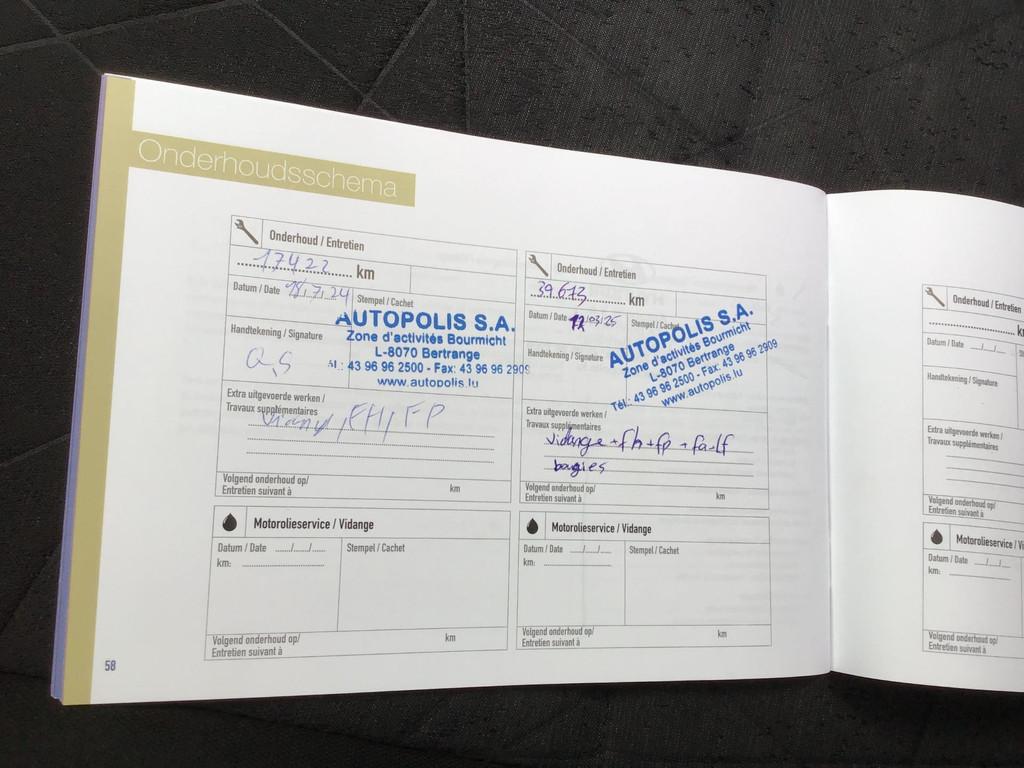 Onderhoudsschema
Onderhoud / Entretien
17422 km
Datum / Date 18/7/24 Stempel / Cachet
AUTOPOLIS S.A.
Zone d'activités Bourmicht
L-8070 Bertrange
Handtekening / Signature
43 96 96 2500 - Fax: 43 96 96 2909
www.autopolis.lu
Extra uitgevoerde werken /
Travaux supplémentaires
FH, FP
Volgend onderhoud op/
Entretien suivant à km
Motorolieservice / Vidange
Datum / Date ....../....../...... Stempel / Cachet
km:
Volgend onderhoud op/ km
Entretien suivant à
Onderhoud / Entretien
39.613 km
Datum / Date 03/25 Stempel / Cachet
AUTOPOLIS S.A.
Zone d'activités Bourmicht
L-8070 Bertrange
Handtekening / Signature
Tél.: 43 96 96 2500 - Fax: 43 96 96 2909
www.autopolis.lu
Extra uitgevoerde werken /
Travaux supplémentaires
vidange + fh + fp + fa-lf
bougies
Volgend onderhoud op/
Entretien suivant à km
Motorolieservice / Vidange
Datum / Date ....../....../...... Stempel / Cachet
km:
Volgend onderhoud op/ km
Entretien suivant à
58
Onderhoud / Entretien
Datum / Date ....../....../......
Handtekening / Signature
Extra uitgevoerde werken /
Travaux supplémentaires
Volgend onderhoud op/
Entretien suivant à
Motorolieservice /
Datum / Date ....../....../......
km:
Volgend onderhoud op/
Entretien suivant à